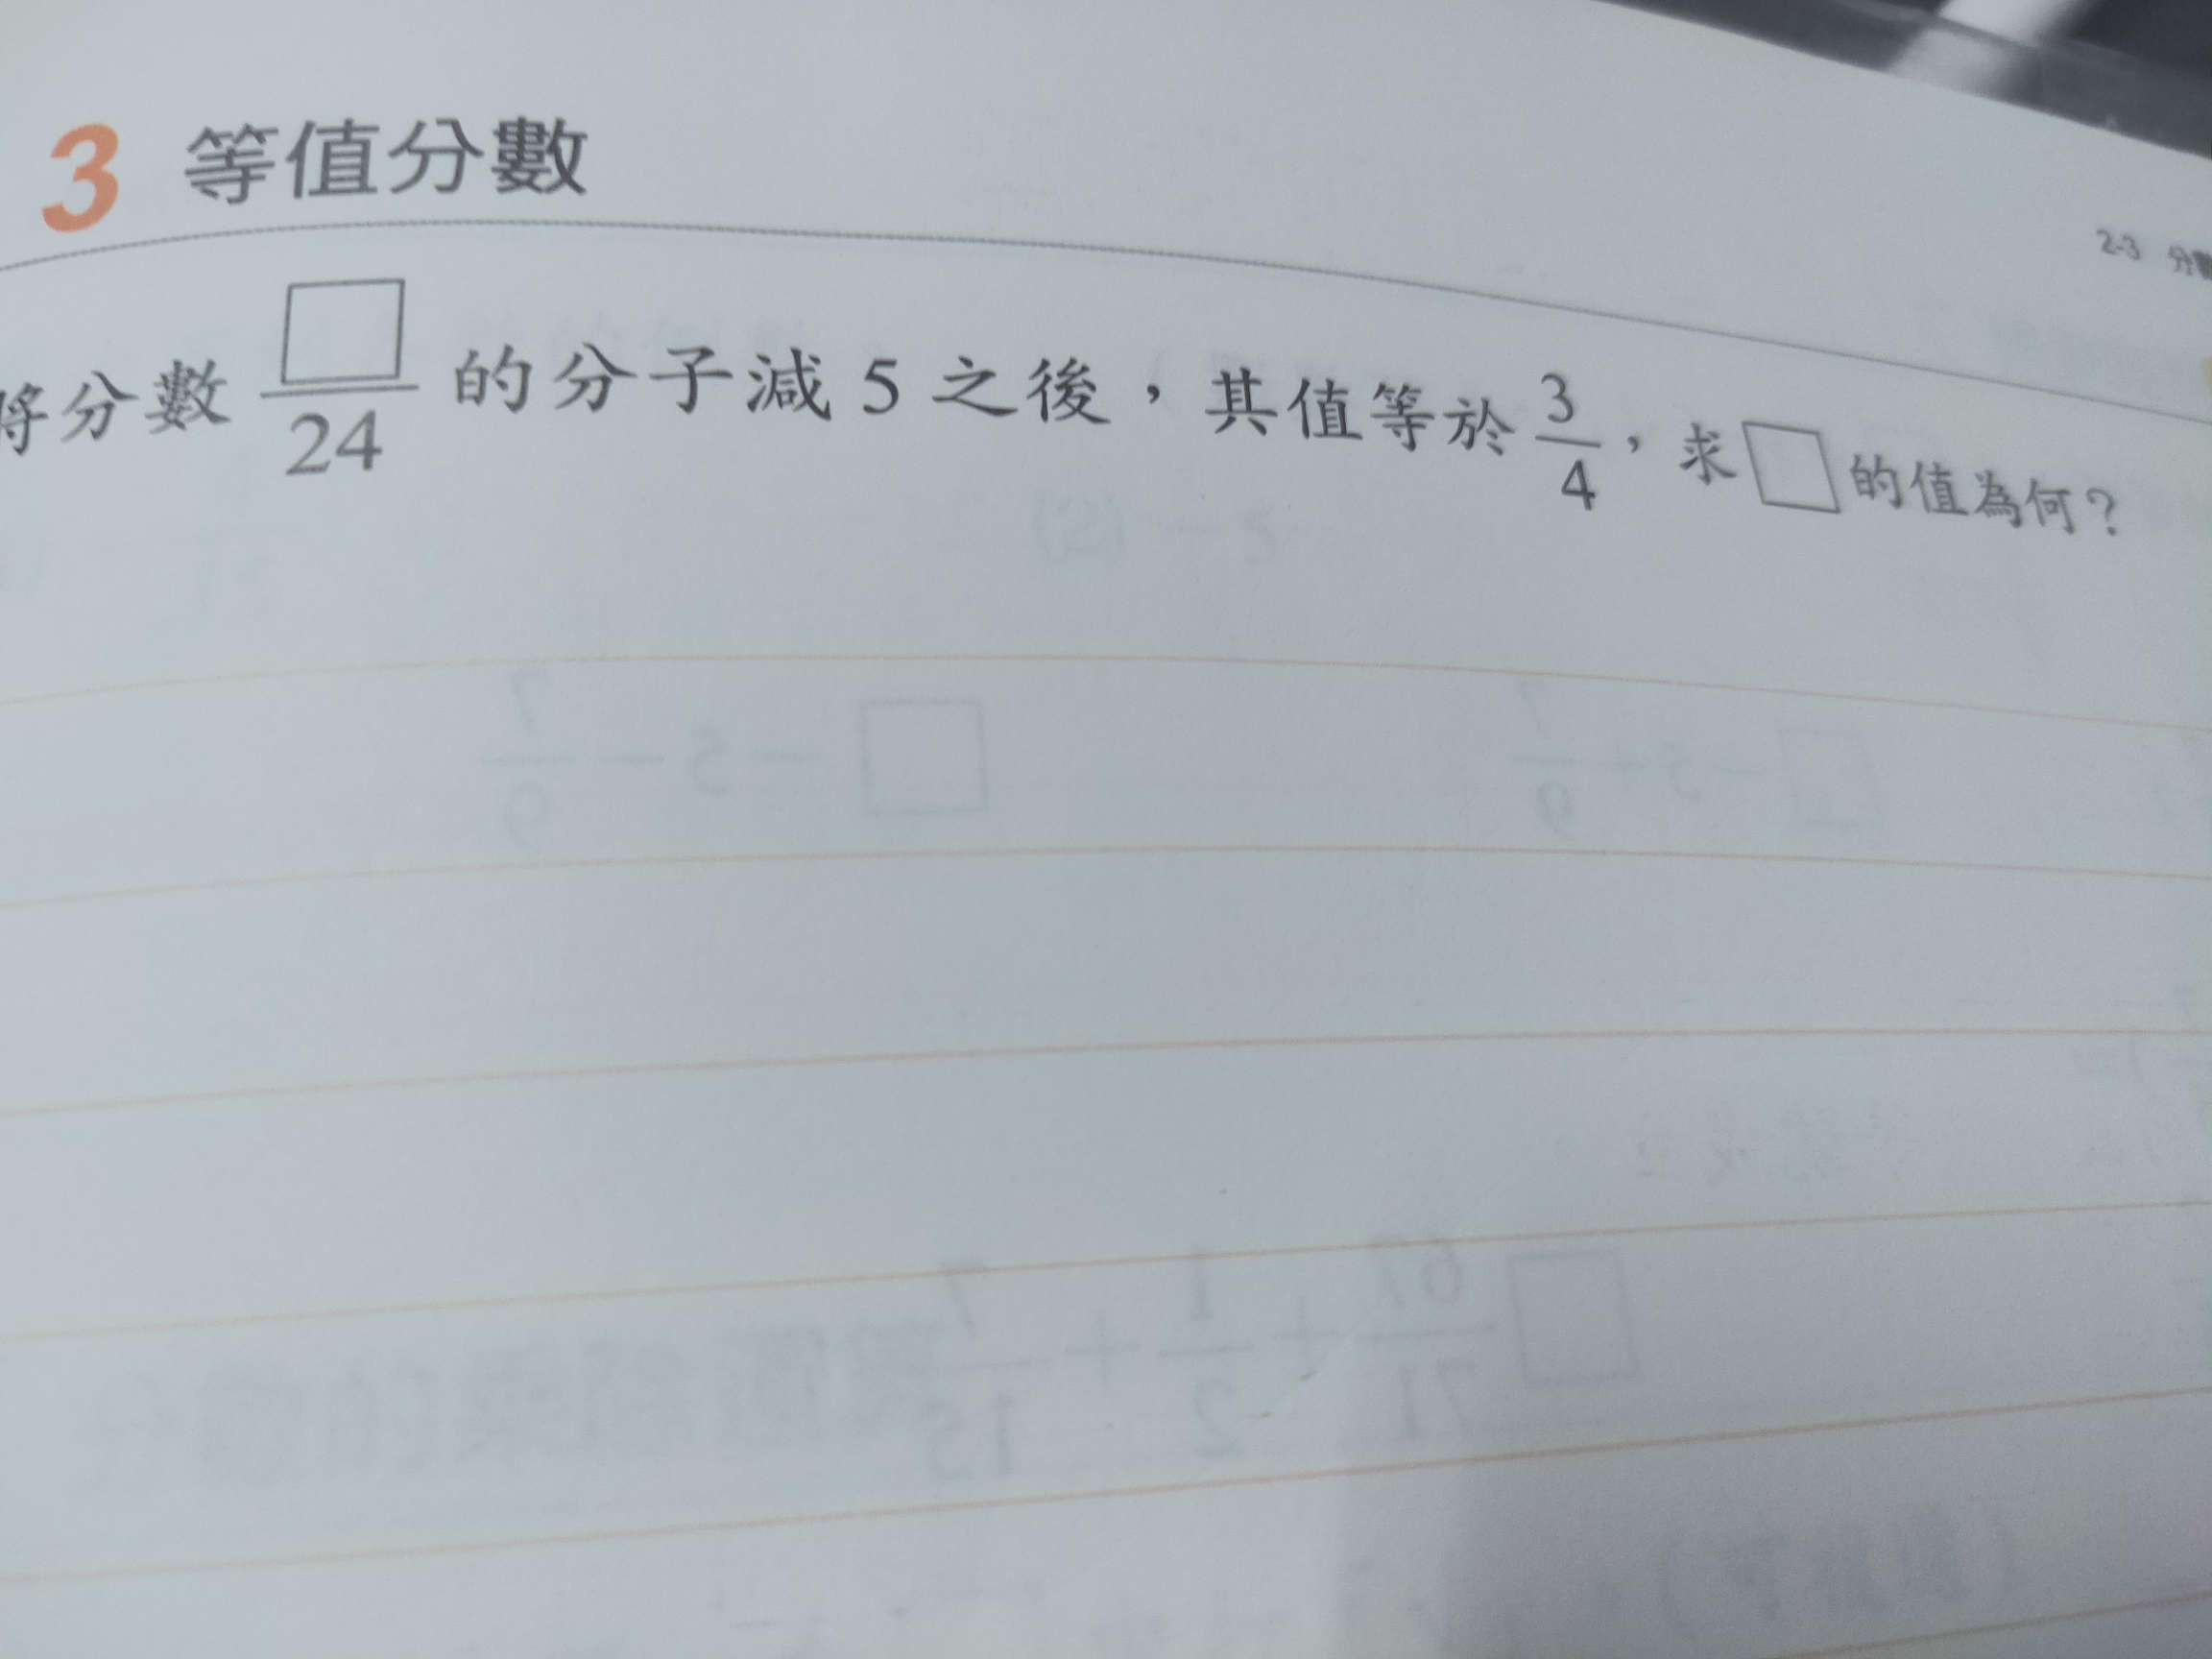 3 等值分數
2-3 分數
將分數 □/24 的分子減 5 之後，其值等於 3/4，求□的值為何？